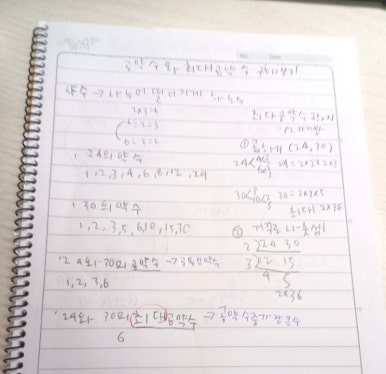 공약수와 최대공약수 구해보기
약수 → 나누어 떨어지게 하는 수
2x3=6
6÷2=3
6÷3=2
24의 약수
1, 2, 3, 4, 6, 8, 12, 24
30의 약수
1, 2, 3, 5, 6, 10, 15, 30
24와 30의 공약수 → 공통된 약수
1, 2, 3, 6
24와 30의 최대공약수 → 공약수 중 가장 큰 수
6
최대공약수 구하기
① 곱하기 (24, 30)
24 24=2x2x2x3
30 30=2x3x5
최대 2x3=6
② 거꾸로 나눗셈
2) 24 30
3) 12 15
4 5
2x3=6